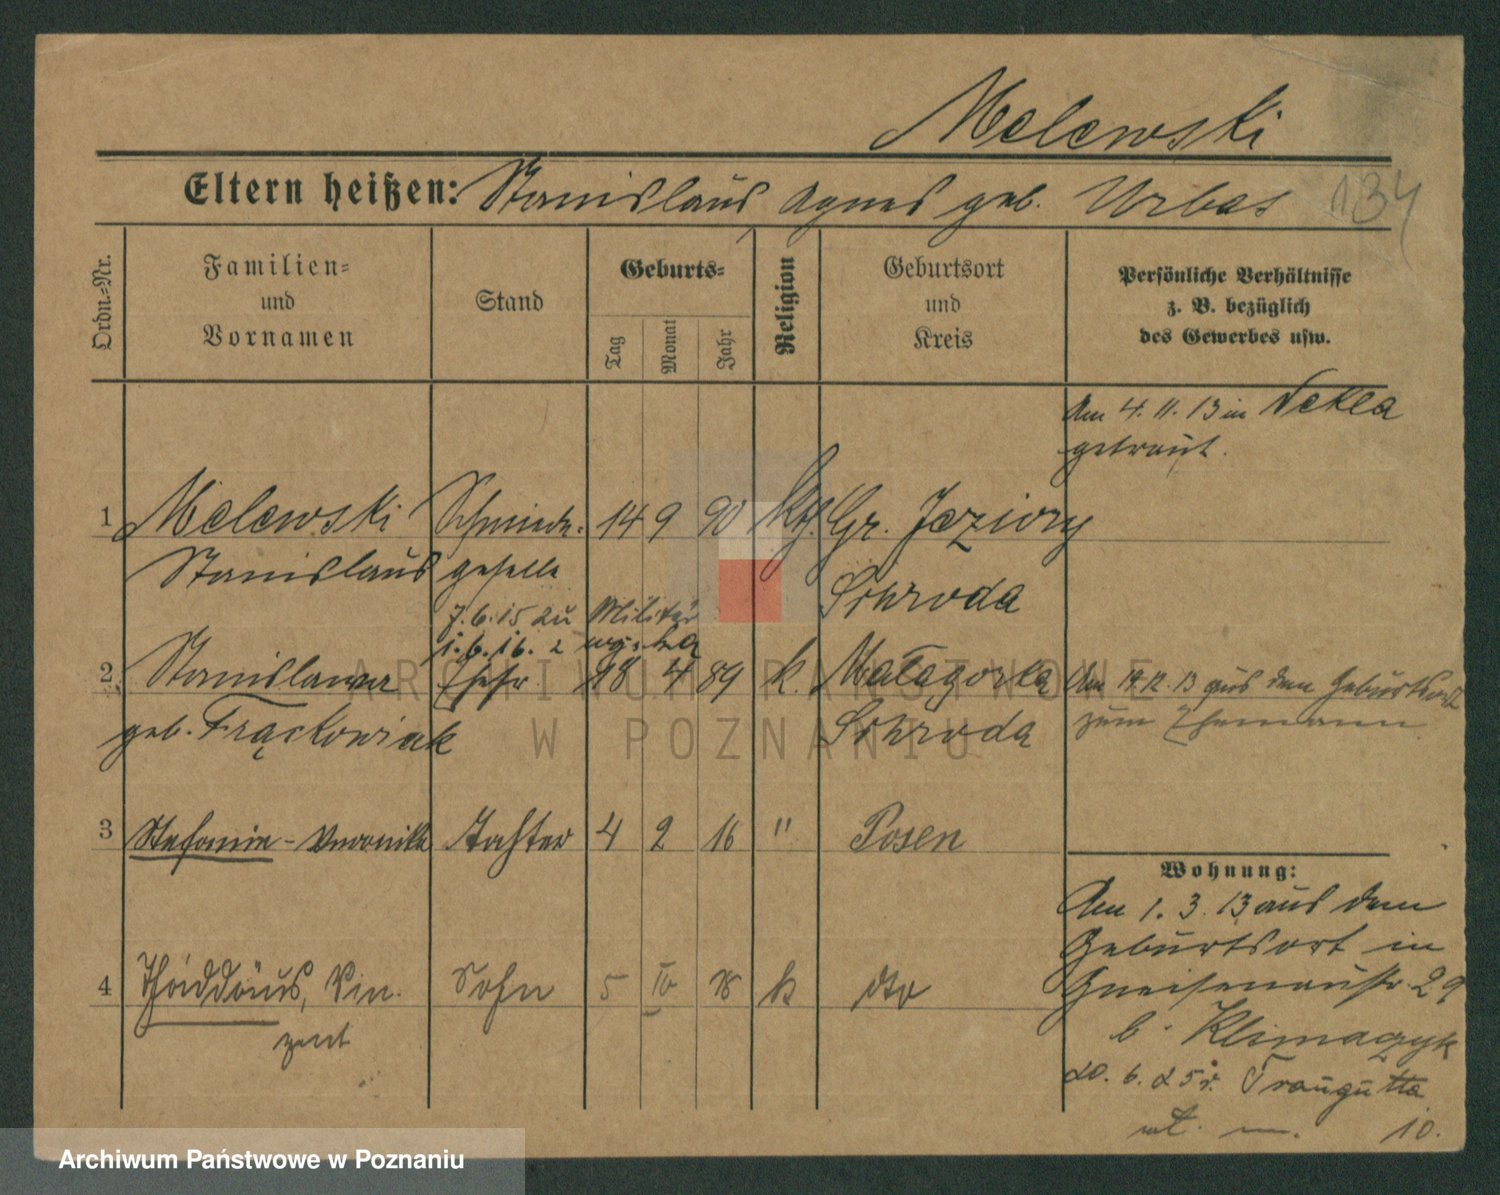 Melewski
Eltern heißen: Stanislaus Agnes geb. Urbas 134
Ordn.=Nr.
Familien=
und
Vornamen
Stand
Geburts=
Tag
Monat
Jahr
Religion
Geburtsort
und
Kreis
Persönliche Verhältnisse
z. B. bezüglich
des Gewerbes usw.
Am 4. 11. 13 in Nekla
getraut.
1 Melewski Schmiede= 14 9 90 kth. Gr. Jeziory
Stanislaus geselle Schroda
7.6.15 zu Militär
1.6.16. z
2 Stanislawa Ehefr. 18 4 89 k. Małagorka Am 14.12.13 aus dem Geburtsort
geb. Frąckowiak Schroda zum Ehemann
3 Stefanie - Veronika Tochter 4 2 16 " Posen
4 Thaddäus, Vin= Sohn 5 IV 18 k dto
zent
Wohnung:
Am 1. 3. 13 aus dem
Geburtsort in
Gneisenaustr. 29
b. Klimaczyk
20. 6. 25 r. Traugutta
10.
ARCHIWUM PAŃSTWOWE
W POZNANIU
Archiwum Państwowe w Poznaniu